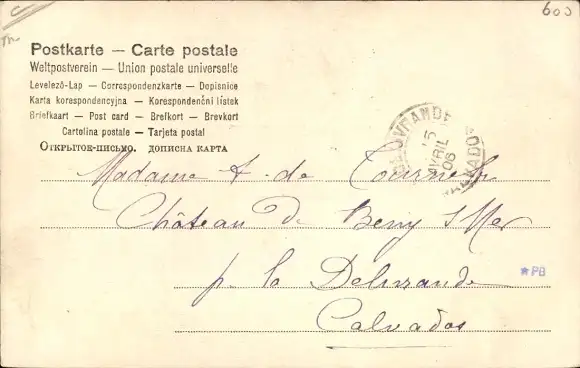 603
Postkarte — Carte postale
Weltpostverein — Union postale universelle
Levelező-Lap — Correspondenzkarte — Dopisnice
Karta korespondencyjna — Korespondenční lístek
Briefkaart — Post card — Brefkort — Brevkort
Cartolina postale — Tarjeta postal
Открытое-письмо. дописна карта
15
AVRIL
06
Madame F. de
Château de Beny s/Mer
p. la Delivrande
*PB
Calvados